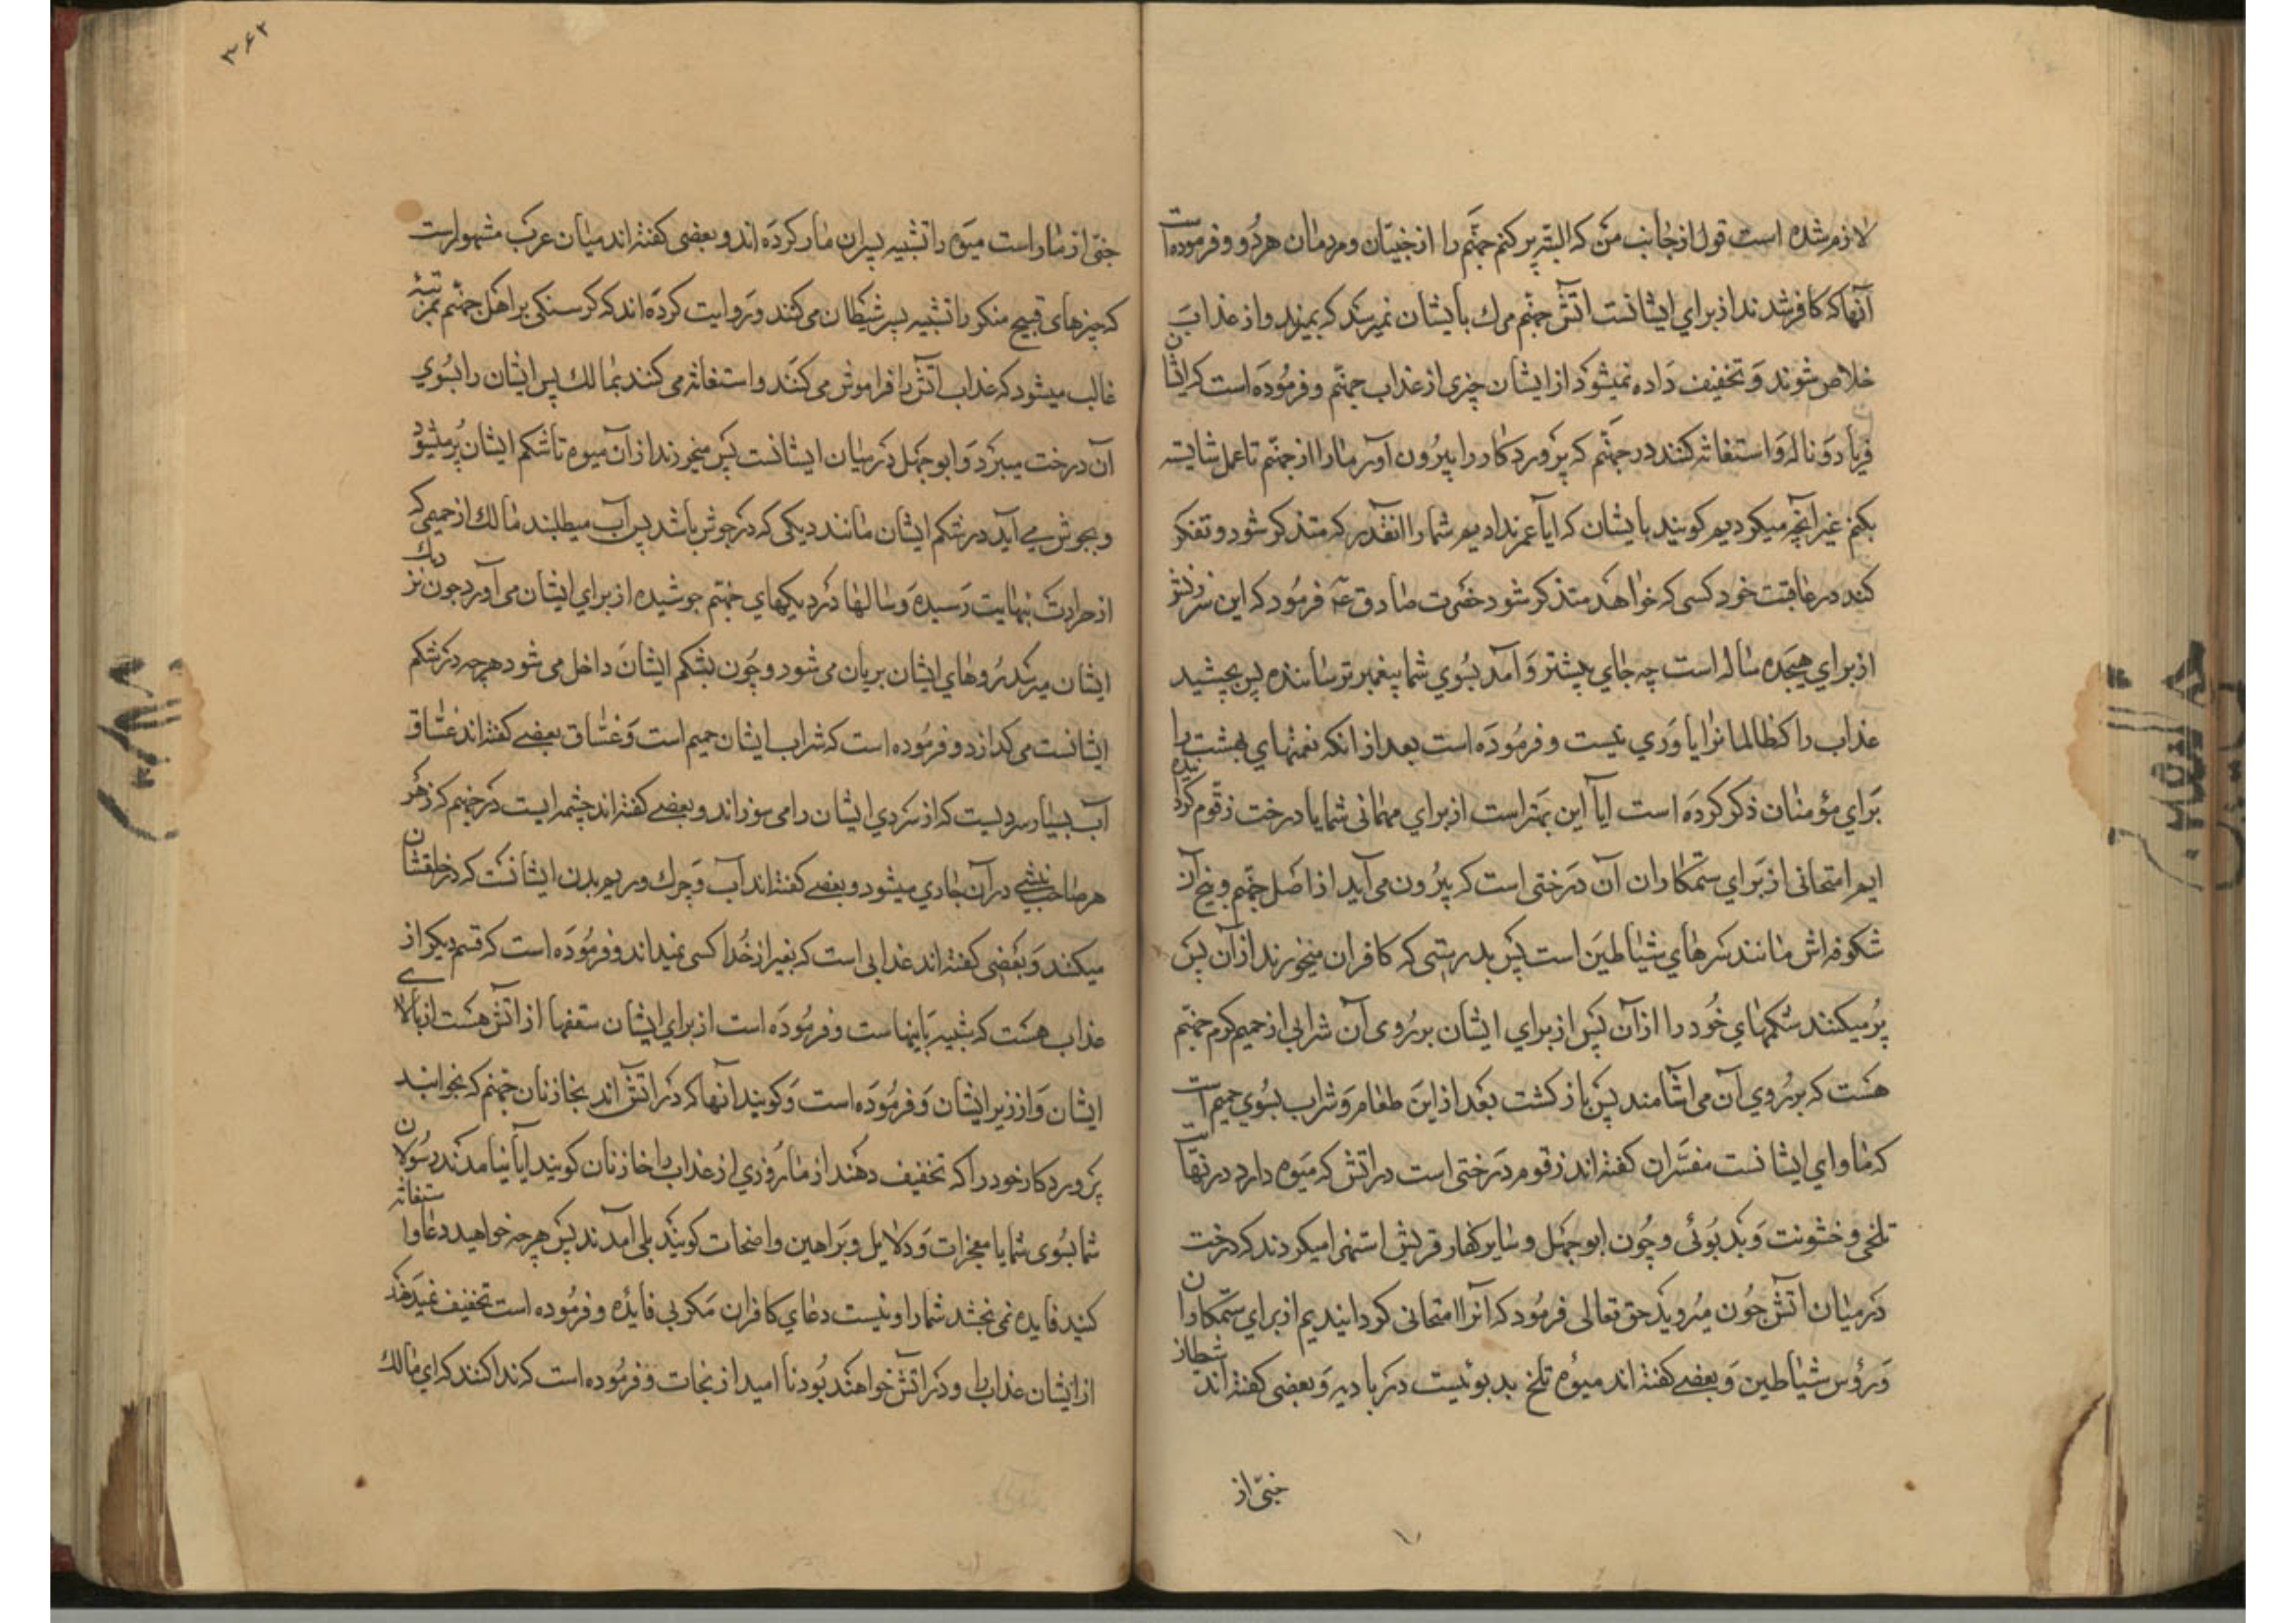 لازم شده است قول از جانب من که البته پر کنم جهنّم را از جنیّان و مردمان هر دو و فرموده است
آنها که کافر شدند از برای ایشانست اتش جهنّم مرک بایشان نمیرسد که بمیرند و از عذاب
خلاص شوند و تخفیف داده نمیشود از ایشان چیزی از عذاب جهنّم و فرموده است که ایشان
فریاد و ناله و استغاثه کنند در جهنّم که پروردکارا بیرون آور ما را از جهنّم تا عمل شایسته
بکنم غیر آنچه میکردیم کویند بایشان که ایا عمر ندادیم شما را انقدر که متذکر شود و تفکر
کند در عاقبت خود کسی که خواهد متذکر شود حضرت صادق ع فرمود که این سرزنش
از برای هیجده ساله است چه جای بیشتر و آمد بسوی شما پیغمبر ترساننده پس بچشید
عذاب را که ظالمانرا یاوری نیست و فرموده است بعد از انکه نعمتهای بهشت را
برای مؤمنان ذکر کرده است ایا این بهتر است از برای مهمانی شما یا درخت زقّوم کردانیده
ایم امتحانی از برای ستمکاران آن درختی است که بیرون می آید از اصل جهنّم و بیخ آن
شکوفه اش مانند سرهای شیاطین است پس بدرستی که کافران میخورند از آن پس
پر میکنند شکمهای خود را از آن پس از برای ایشان بر روی آن شرابی از حمیم کرم جهنّم
هست که بر روی آن می اشامند پس باز کشت بعد از این طعام و شراب بسوی جهیم است
که ماوای ایشانست مفسّران کفته اند زقوم درختی است در اتش که میوه دارد در نهایت
تلخی و خشونت و بد بوئی و چون ابو جهل و سایر کفار قریش استهزا میکردند که درخت
در میان آتش چون میروید حق تعالی فرمود که آنرا امتحانی کردانیدیم از برای ستمکاران
و رؤس شیاطین و بعضی کفته اند میوه تلخ بد بوئیست در بادیه و بعضی کفته اند شیطان
جنّی از
۳۶۲
جنّی از مار است میوه را تشبیه بسران مار کرده اند و بعضی کفته اند میان عرب مشهور است
که چیزهای قبیح منکر را تشبیه بسر شیطان می کنند و روایت کرده اند که کرسنکی بر اهل جهنّم بمرتبهٔ
غالب میشود که عذاب آتش را فراموش می کنند و استغاثه می کنند بمالک پس ایشان را بسوی
آن درخت میبرد و ابو جهل در میان ایشانست پس میخورند از آن میوه تا شکم ایشان پر میشود
و بجوش می آید در شکم ایشان مانند دیکی که در جوش باشد پس آب میطلبند مالک از حمیمی که
از حرارت بنهایت رسیده و سالها در دیکهای جهنّم جوشیده از برای ایشان می آورد چون نزدیک
ایشان میرسد روهای ایشان بریان می شود و چون بشکم ایشان داخل می شود هر چه در شکم
ایشانست می کدازد و فرموده است که شراب ایشان حمیم است و غسّاق بعضی کفته اند غسّاق
آب بسیار سردیست که از سردی ایشان را می سوزاند و بعضی کفته اند چشمه ایست در جهنم که زهر
هر صاحب نیشی در آن جاری میشود و بعضی کفته اند آب و چرک و ریم بدن ایشانست که در حلقشان
میکنند و بعضی کفته اند عذابی است که بغیر از خدا کسی نمیداند و فرموده است که قسم دیکر از
عذاب هست که شبیه باینهاست و فرموده است از برای ایشان سقفها از اتش هست از بالای
ایشان و از زیر ایشان و فرموده است و کویند آنها که در اتش اند بخازنان جهنم که بخوانید
پروردکار خود را که تخفیف دهند از ما روزی از عذاب را خازنان کویند ایا نیامدند رسولان
شما بسوی شما با معجزات و دلایل و براهین واضحات کویند بلی آمدند پس هر چه خواهید دعا و استغاثه
کنید فایده نمی بخشد شما را و نیست دعای کافران مکر بی فایده و فرموده است تخفیف نمیدهند
از ایشان عذاب را و در اتش خواهند بود نا امید از نجات و فرموده است که ندا کنند که ای مالک